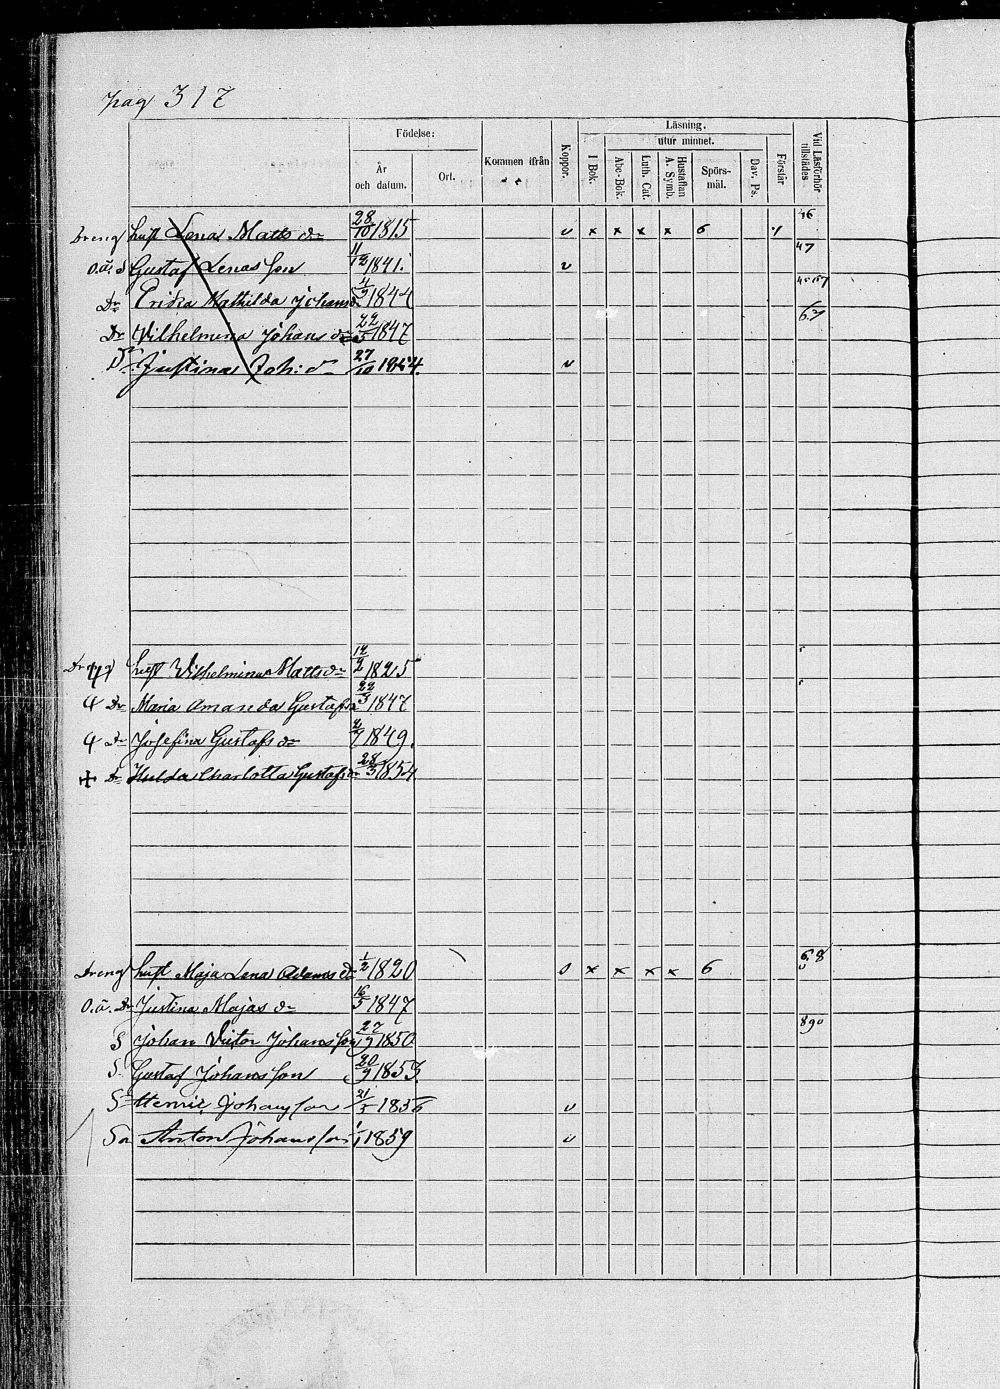 pag 317
Födelse:
Läsning.
utur minnet.
År och datum.
Ort.
Kommen ifrån
Koppor.
I Bok.
Abc-Bok.
Luth. Cat.
Hustaflan A. Symb.
Spörs-mål.
Dav. Ps.
Förstår
Vid Läsförhör tillstädes
46
Dreng hust Lena Matts dr 28/10 1815 v x x x x 6
47
o.ä. S Gustaf Lenas son 11/12 1841. v
Dr Erika Mathilda Johans dr 1844
67
Dr Wilhelmina Johans dr 22/5 1847
Dr Justina Joh: dr 27/10 1854. v
hust Wilhelmina Matts dr 12/2 1825
Dr Maria Amanda Gustafs 22/3 1847
Dr Josefina Gustafs dr 1849.
Dr Hulda Charlotta Gustafs dr 28/3 1854
68
Dreng hust Maja Lena Adams dr 1/2 1820 x x x x 6
o.ä. Dr Justina Majas dr 16/5 1847
890
S Johan Victor Johansson 27/19 1850
S. Gustaf Johansson 20/9 1853.
S Henric Johansson 21/5 1856 v
So Anton Johansson 1/1 1859 v